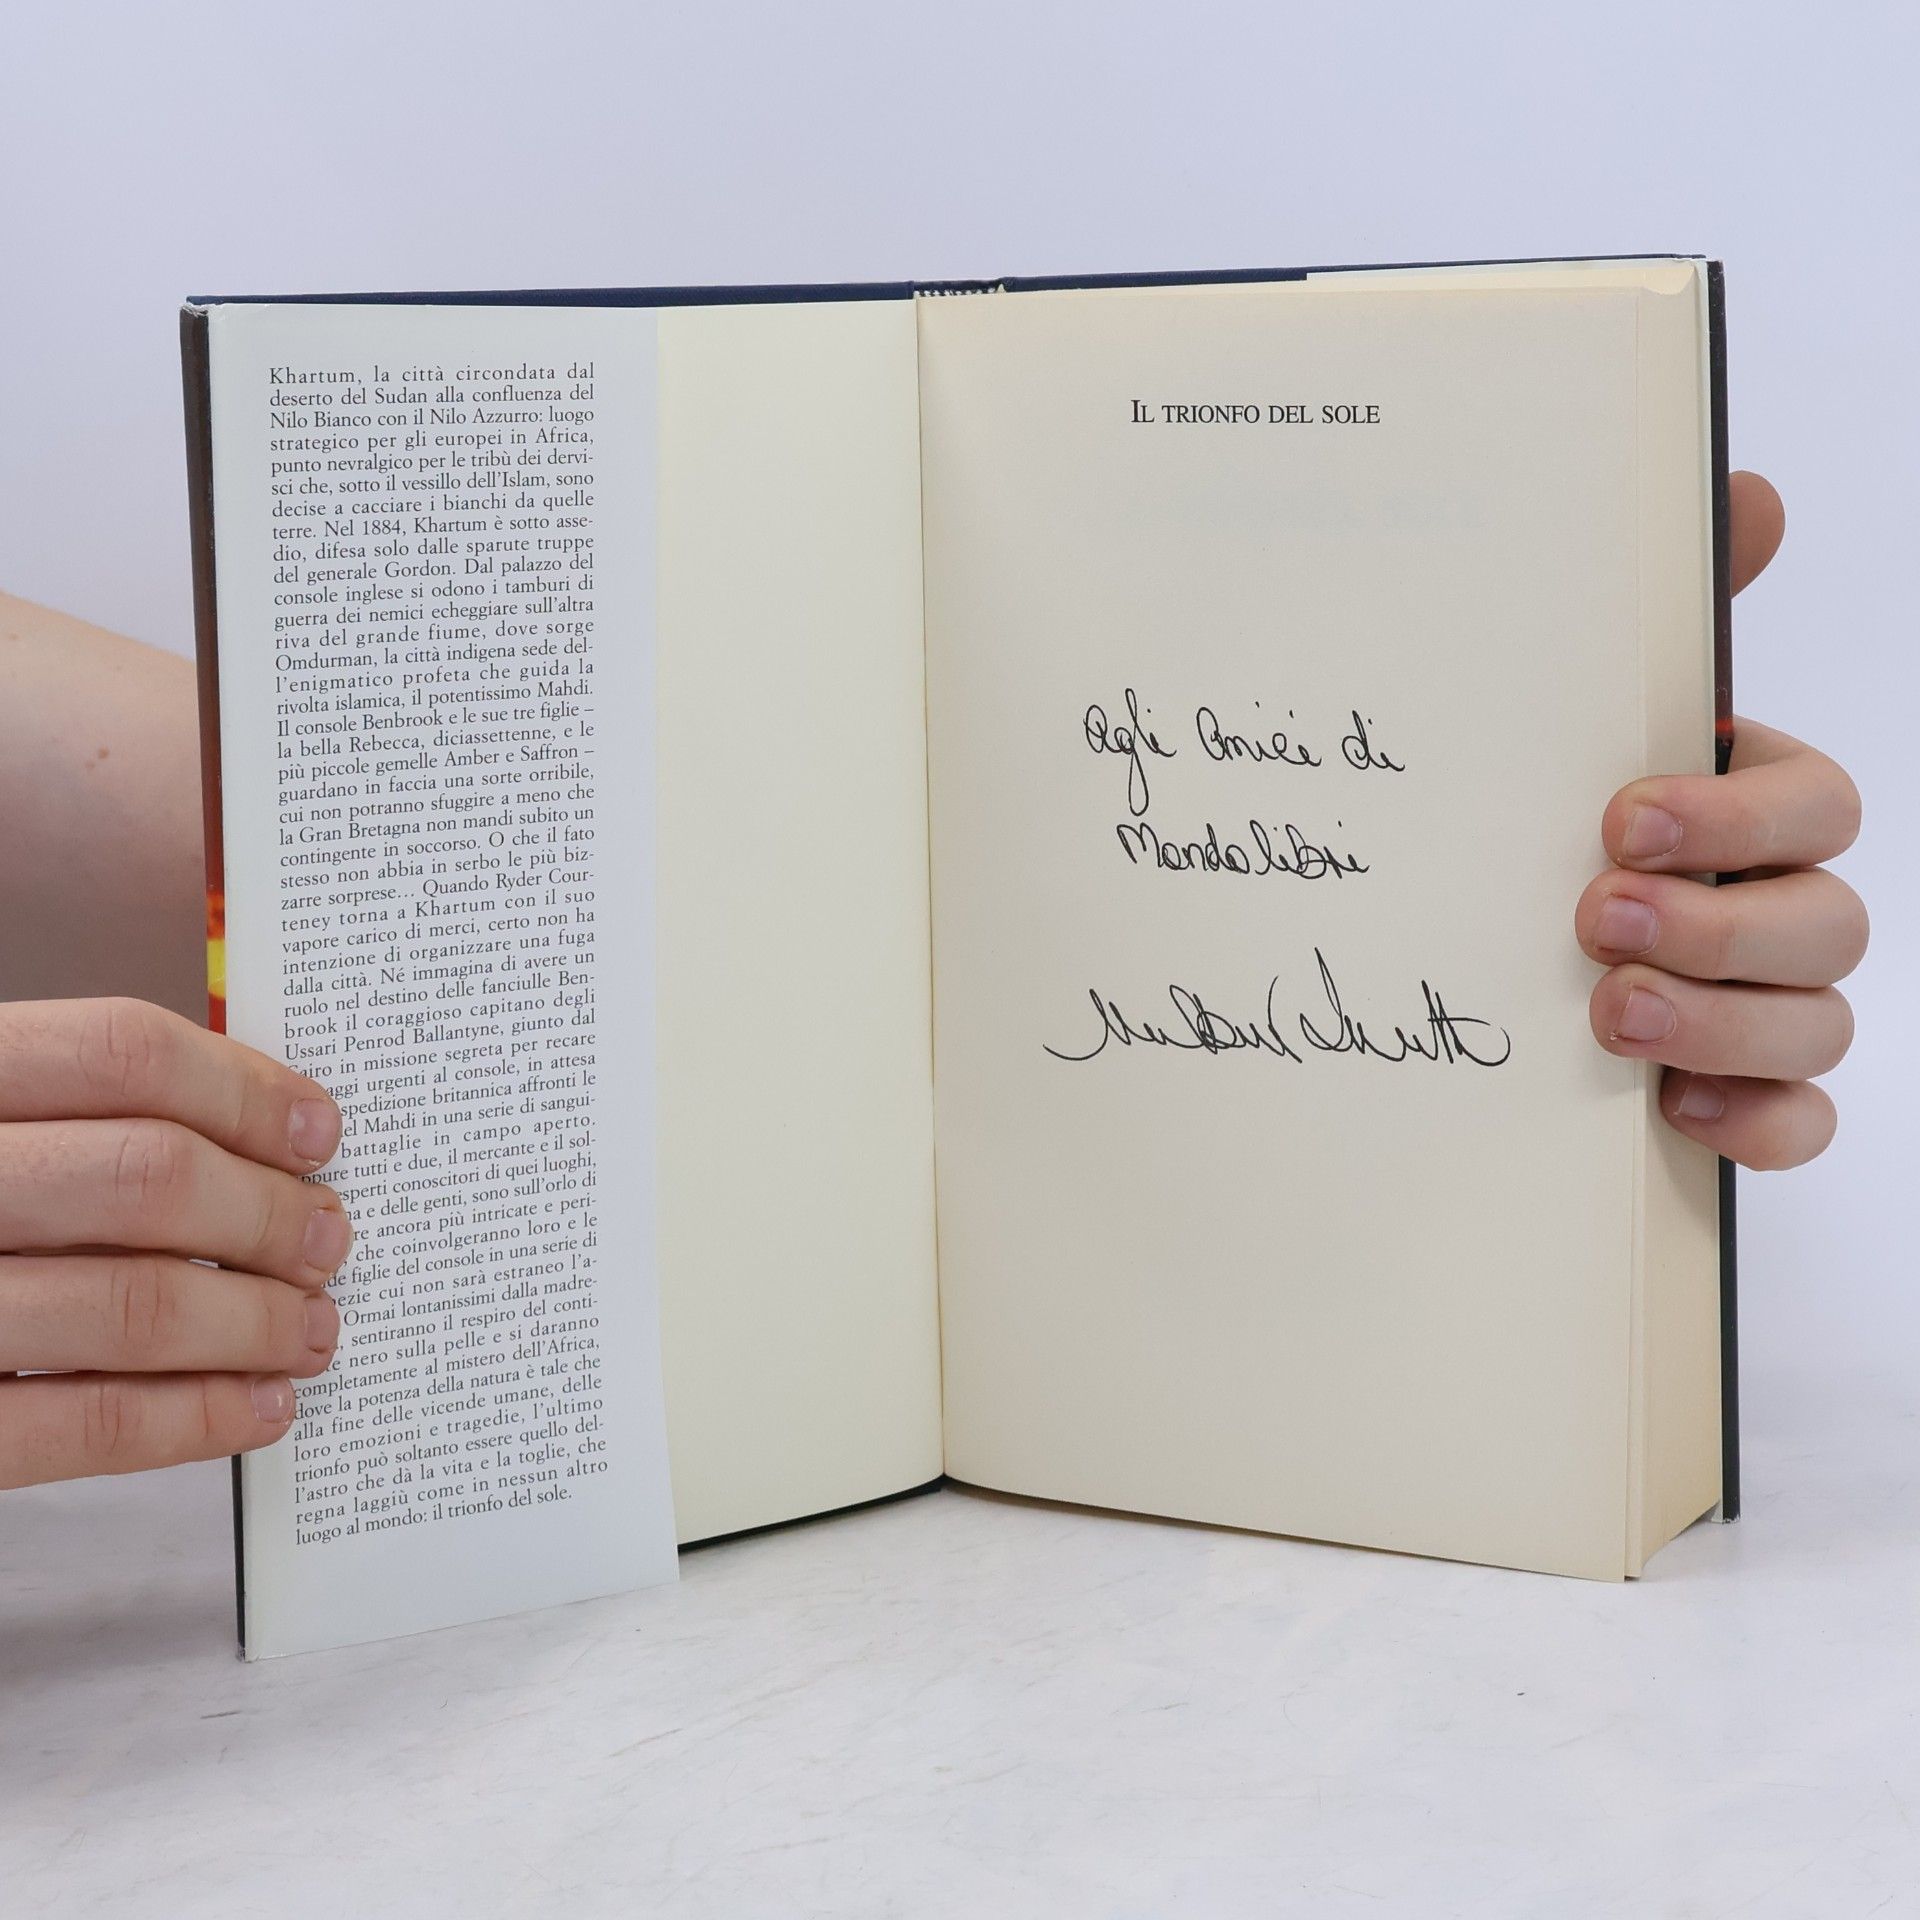 Khartum, la città circondata dal
deserto del Sudan alla confluenza del
Nilo Bianco con il Nilo Azzurro: luogo
strategico per gli europei in Africa,
punto nevralgico per le tribù dei dervi-
sci che, sotto il vessillo dell'Islam, sono
decise a cacciare i bianchi da quelle
terre. Nel 1884, Khartum è sotto asse-
dio, difesa solo dalle sparute truppe
del generale Gordon. Dal palazzo del
console inglese si odono i tamburi di
guerra dei nemici echeggiare sull'altra
riva del grande fiume, dove sorge
Omdurman, la città indigena sede del-
l'enigmatico profeta che guida la
rivolta islamica, il potentissimo Mahdi.
Il console Benbrook e le sue tre figlie –
la bella Rebecca, diciassettenne, e le
più piccole gemelle Amber e Saffron –
guardano in faccia una sorte orribile,
cui non potranno sfuggire a meno che
la Gran Bretagna non mandi subito un
contingente in soccorso. O che il fato
stesso non abbia in serbo le più biz-
zarre sorprese... Quando Ryder Cour-
teney torna a Khartum con il suo
vapore carico di merci, certo non ha
intenzione di organizzare una fuga
dalla città. Né immagina di avere un
ruolo nel destino delle fanciulle Ben-
brook il coraggioso capitano degli
Ussari Penrod Ballantyne, giunto dal
Cairo in missione segreta per recare
aggi urgenti al console, in attesa
spedizione britannica affronti le
el Mahdi in una serie di sangui-
battaglie in campo aperto.
ppure tutti e due, il mercante e il sol-
esperti conoscitori di quei luoghi,
na e delle genti, sono sull'orlo di
re ancora più intricate e peri-
che coinvolgeranno loro e le
de figlie del console in una serie di
pezie cui non sarà estraneo l'a-
Ormai lontanissimi dalla madre-
, sentiranno il respiro del conti-
e nero sulla pelle e si daranno
completamente al mistero dell'Africa,
dove la potenza della natura è tale che
alla fine delle vicende umane, delle
loro emozioni e tragedie, l'ultimo
trionfo può soltanto essere quello del-
l'astro che dà la vita e la toglie, che
regna laggiù come in nessun altro
luogo al mondo: il trionfo del sole.
IL TRIONFO DEL SOLE
Agli Amici di
Mondolibri
Wilbur Smith